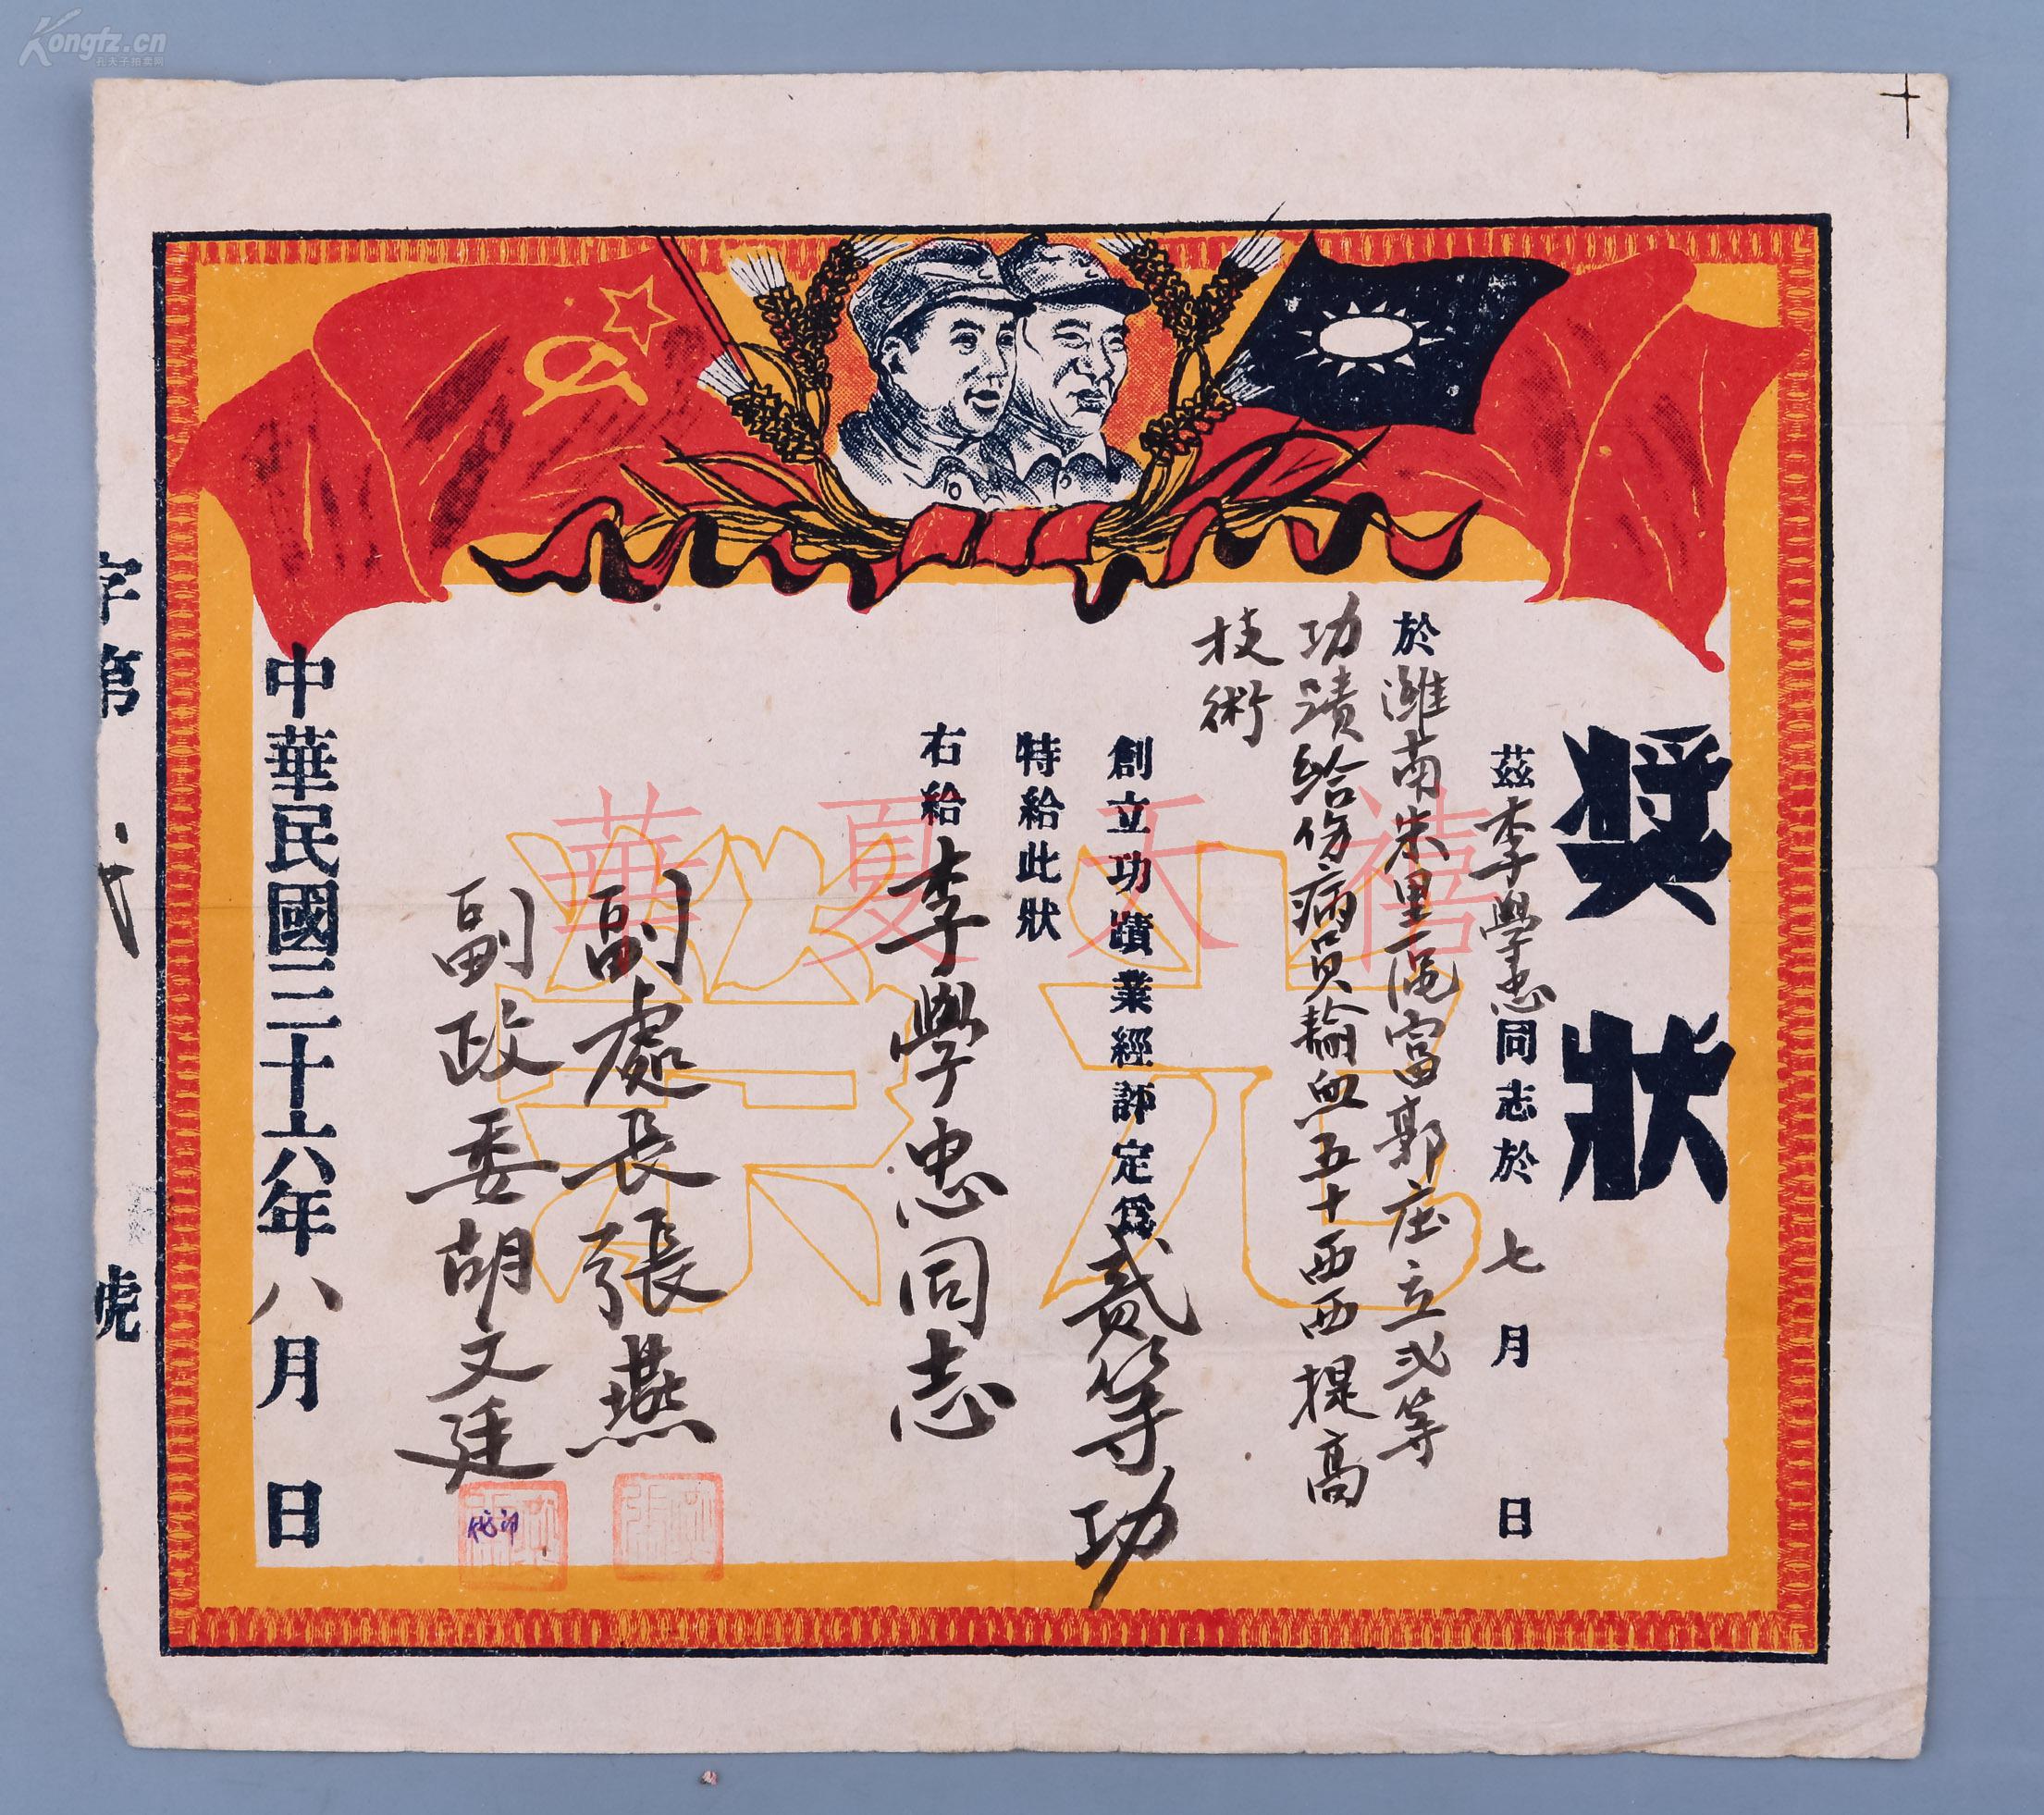 奨狀
茲李學忠同志於 七月 日
於濰南朱里區富郭庄立弍等
功蹟給伤病員輸血五十西西提高
技術
創立功蹟業經評定爲貳等功
特給此狀
右給李學忠同志
副處長張燕
副政委胡文廷
代印
中華民國三十六年八月 日
字第 號
光榮
華夏天禧
Kongfz.cn
孔夫子拍卖网